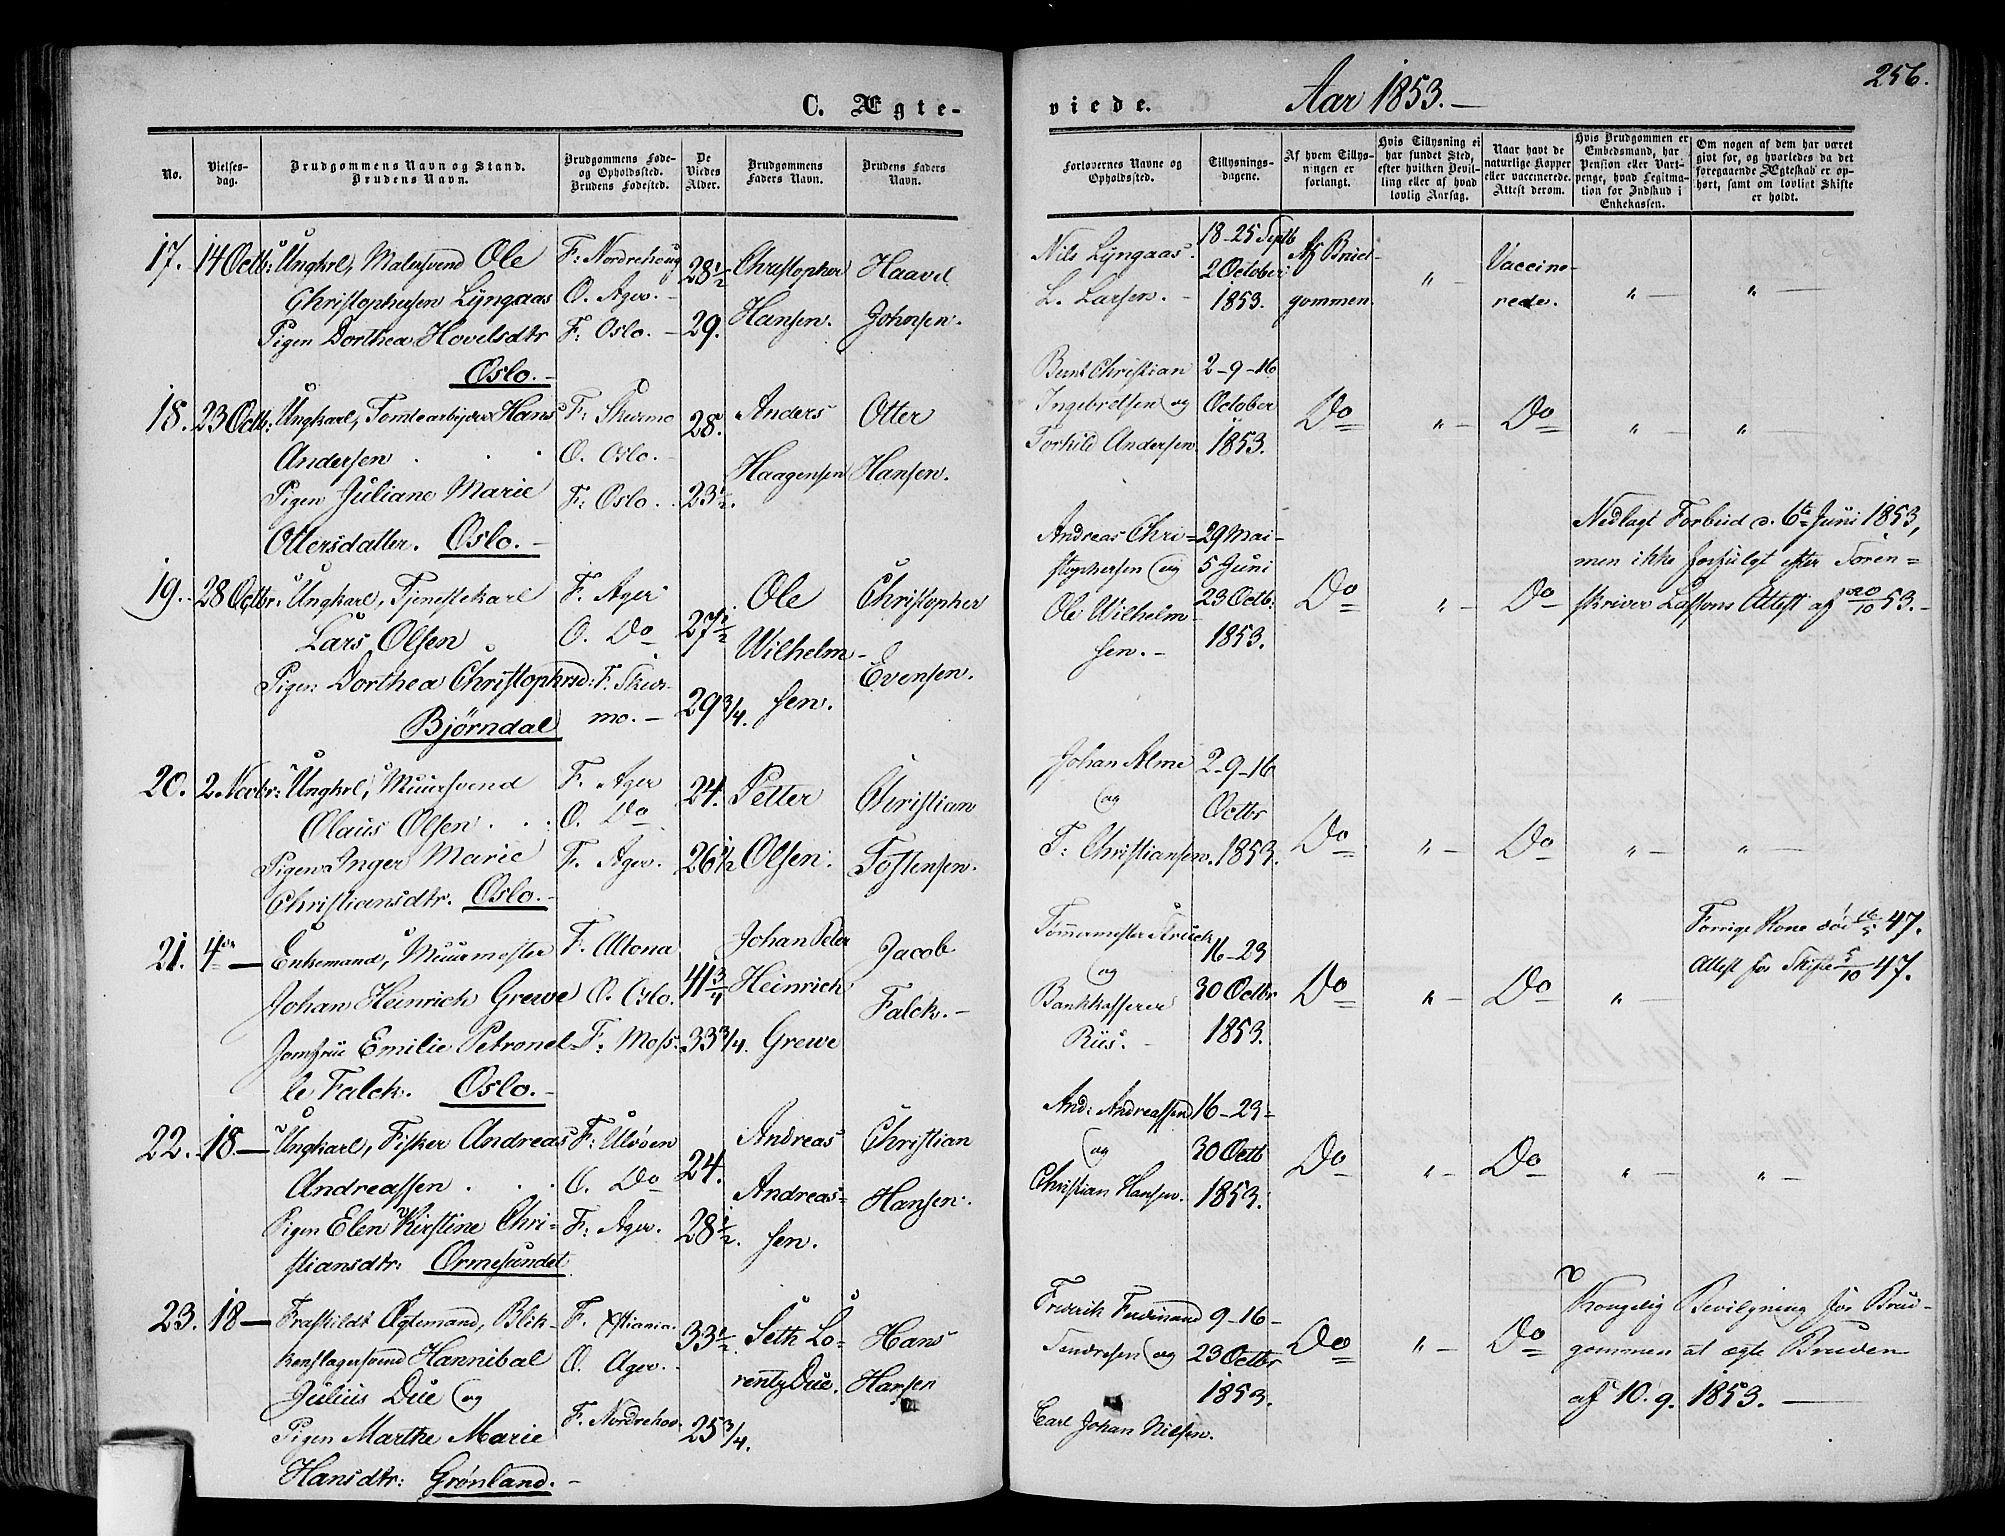 256.
C. Ægte-
viede. Aar 1853.—
No.
Vielses-
dag.
Brudgommens Navn og Stand.
Brudens Navn.
Brudgommens Føde-
og Opholdssted.
Brudens Fødested.
De
Viedes
Alder.
Brudgommens
Faders Navn.
Brudens Faders
Navn.
Forlovernes Navne og
Opholdssted.
Tillysnings-
dagene.
Af hvem Tillys-
ningen er
forlangt.
Hvis Tillysning ei
har fundet Sted,
efter hvilken Bevil-
ling eller af hvad
lovlig Aarsag.
Naar havt de
naturlige Kopper
eller vaccinerede.
Attest derom.
Hvis Brudgommen er
Embedsmand, har
Pension eller Vart-
penge, hvad Legitima-
tion for Indskud i
Enkekassen.
Om nogen af dem har været
givt før, og hvorledes da det
foregaaende Ægteskab er op-
hørt, samt om lovligt Skifte
er holdt.
17. 14 Octb: Ungkrl, Malersvend Ole
Christophersen Lyngaas
Pigen Dorthea Hovelsdtr
Oslo.—
F: Nordrehoug
O. Ager.—
F: Oslo.—
28 1/2
29.
Christopher
Hansen.
Haavel
Johnsen.
Nils Lyngaas.
L. Larsen.—
18-25 Septb
2 October
1853.
Af Brud-
gommen.
" —
Vaccine-
rede.
" —
" —
18. 23 Octb: Ungkarl, Tomtearbejder Hans
Andersen . . .
Pigen Juliane Marie
Ottersdatter. Oslo.—
F: Skiermo
O. Oslo.—
F: Oslo.
28.
23 1/2.
Anders
Haagensen
Otter
Hansen.
Bent Christian
Ingebretsen og
Torkild Andersen
2-9-16
October
1853.
Do
" —
Do
" —
" —
19. 28 Octbr: Ungkarl, Tjenestekarl
Lars Olsen
Pigen Dorthea Christophrsd:
Bjørndal
F. Ager
O. Do
F. Skier-
mo.—
27 1/2
29 3/4.
Ole
Wilhelm-
sen.
Christopher
Evensen.
Andreas Chri-
stophersen og
Ole Wilhelm-
sen.—
29 Mai-
5 Juni
23 Octb:
1853.
Do
" —
Do
Nedlagt Forbud d. 6te Juni 1853,
men ikke forfulgt efter Soren-
skriver Lassons Attest af 20/10 53.—
20. 2 Novbr: Ungkrl, Muursvend
Olaus Olsen . . .
Pigen Inger Marie
Christiansdtr. Oslo.—
F. Ager
O. Do
F. Ager.
24.
26 1/2
Petter
Olsen:
Christian
Tostensen.
Johan Alme
og
T: Christiansen.
2-9-16
Octbr
1853.
Do
" —
Do
" —
" —
21. 4de — Enkemand, Muurmester
Johan Heinrich Grewe
Jomfrue Emilie Petronel-
le Falck. Oslo.—
F. Altona
O. Oslo.
F: Moss.
41 3/4
33 3/4.
Johan Peter
Heinrich
Grewe
Jacob
Falck.—
Tømmermester Struck
og
Bankkasserer
Riis.—
16-23
30 Octbr
1853.
Do
" —
Do
" —
Forrige Kone død 47.
Attest for Skifte 5/10 47.
22. 18 — Ungkarl, Fisker Andreas
Andreassen . . .
Pigen Elen Kirstine Chri-
stiansdtr: Ormesundet
F: Ulvøen
O. Do
F: Ager.
24.
28 1/2.
Andreas
Andreas-
sen.
Christian
Hansen.
And: Andreassen
og
Christian Hansen.
16-23-
30 Octb
1853.
Do
" —
Do
" —
" —
23. 18 — Fraskildt Ægtemand, Blik-
kenslagersvend Hannibal
Julius Due og
Pigen Marthe Marie
Hansdtr: Grønland.—
F. Xstiania.
O. Ager.—
F. Nordrehov.
33 1/2.
25 3/4.
Seth Lo-
rentz Due.
Hans
Hansen
Fredrik Ferdinand
Tendresen og
Carl Johan Nilsen.
9-16-
23 Octbr
1853.
Do
" —
Do
Kongelig Bevilgning for Brud-
gommen at ægte Bruden
af 10. 9. 1853.—